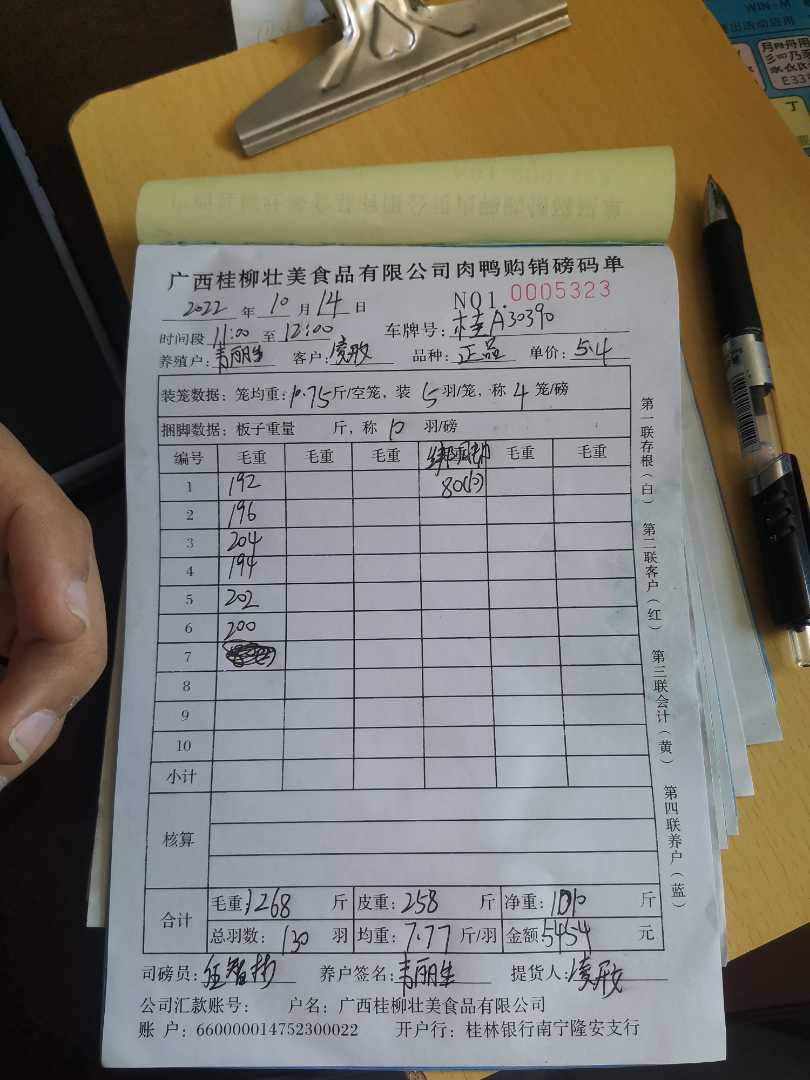 广西桂柳壮美食品有限公司肉鸭购销磅码单
2022 年 10 月 14 日 NO1. 0005323
时间段 11:00 至 12:00 车牌号: 桂A30390
养殖户: 韦丽生 客户: 品种: 正品 单价: 5.4
装笼数据: 笼均重: 10.75斤/空笼, 装 5 羽/笼, 称 4 笼/磅
捆脚数据: 板子重量 斤, 称 10 羽/磅
编号 毛重 毛重 毛重 毛重 毛重
1 192 80(10)
2 196
3 204
4 194
5 202
6 200
7
8
9
10
小计
核算
合计 毛重: 1268 斤 皮重: 258 斤 净重: 1010 斤
总羽数: 130 羽 均重: 7.77 斤/羽 金额: 5454 元
司磅员: 养户签名: 韦丽生 提货人:
公司汇款账号: 户名: 广西桂柳壮美食品有限公司
账 户: 660000014752300022 开户行: 桂林银行南宁隆安支行
第一联存根(白) 第二联客户(红) 第三联会计(黄) 第四联养户(蓝)
WIN+M
E33
丁